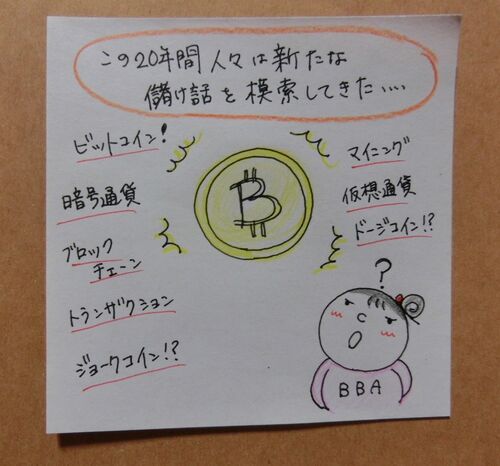 この20年間人々は新たな
儲け話を模索してきた....
ビットコイン!
暗号通貨
ブロック
チェーン
トランザクション
ジョークコイン!?
B
マイニング
仮想通貨
ドージコイン!?
?
BBA